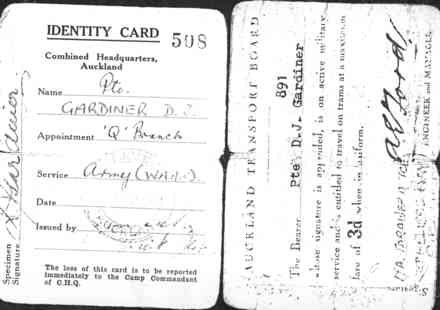 IDENTITY CARD 508
Combined Headquarters,
Auckland
Name Pte.
GARDINER D. J.
Appointment 'Q' Branch
Service Army (W.A.A.C.)
Date
Issued by
Specimen
Signature
The loss of this card is to be reported
immediately to the Camp Commandant
of C.H.Q.
AUCKLAND TRANSPORT BOARD
891
The Bearer Pte D.J. Gardiner
whose signature is appended, is on active military
service and is entitled to travel on trams at a maximum
fare of 3d when in uniform.
A E Ford
ENGINEER and MANAGER